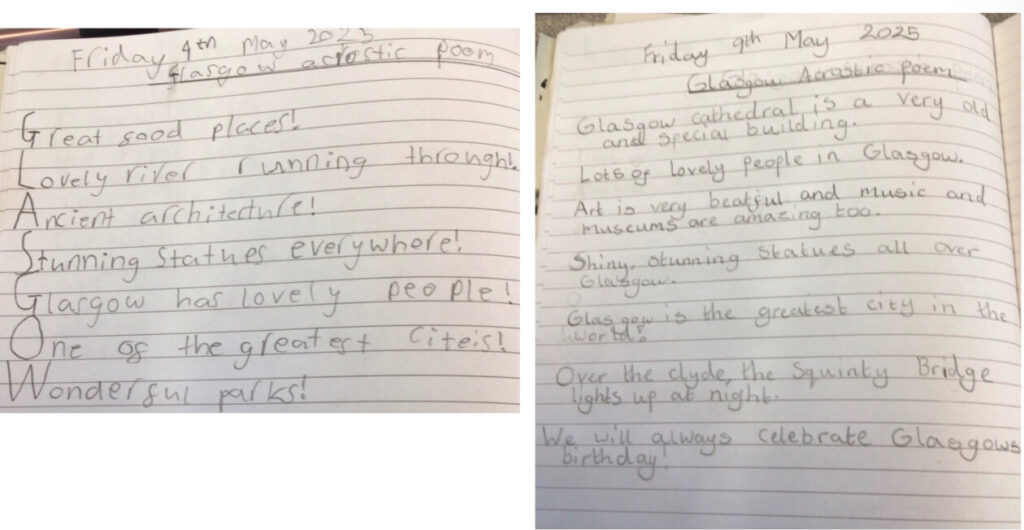 Friday 4th May 2025
Glasgow acrostic poem
Great good places!
Lovely river running through!
Ancient architecture!
Stunning Statues everywhere!
Glasgow has lovely people!
One of the greatest Citeis!
Wonderful parks!
Friday 9th May 2025
Glasgow Acrostic poem
Glasgow cathedral is a very old
and special building.
Lots of lovely people in Glasgow.
Art is very beatful and music and
museums are amazing too.
Shiny, stunning statues all over
Glasgow.
Glasgow is the greatest city in the
world!
Over the clyde, the Squinty Bridge
lights up at night.
We will always celebrate Glasgows
birthday!